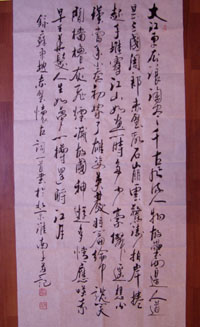 大江東去浪淘盡千古风流人物故壘西邊人道
是三國周郎赤壁乱石崩雲驚濤拍岸捲
起千堆雪江山如画一時多少豪傑遥想公
瑾當年小喬初嫁了雄姿英發羽扇綸巾談笑
間檣櫓灰飛煙滅故國神遊多情應笑我
早生華髮人生如夢一樽還酹江月
赤壁懷古詞一首